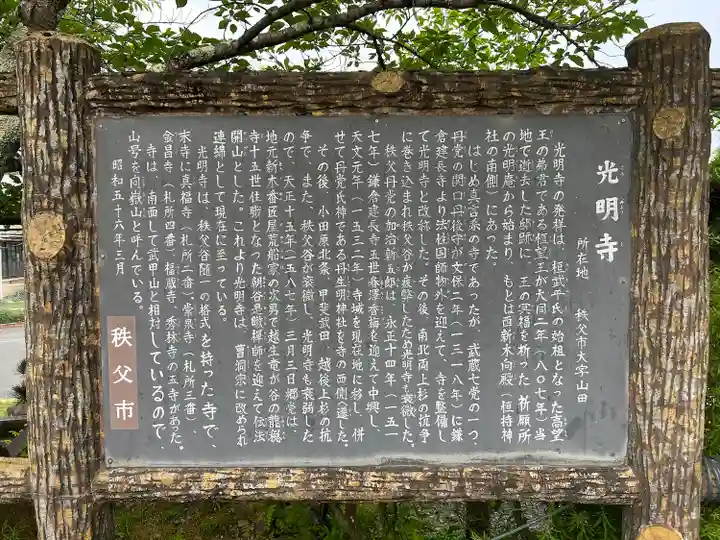 光明寺
所在地 秩父市大字山田
光明寺の発祥は、桓武平氏の始祖となった高望
王の弟君である恒望王が大同二年（八〇七年）当
地で逝去した際に、王の冥福を祈った祈願所
の光明庵から始まり、もとは西新木向殿（恒持神
社の南側）にあった。
はじめ真言系の寺であったが、武蔵七党の一つ、
丹党の関口丹後守が文保二年（一三一八年）に鎌
倉建長寺より法柱国師物外を迎えて、寺を整備し
て光明寺と改称した。その後、南北両上杉の抗争
に巻き込まれ秩父谷が疲弊したため光明寺も衰微した。
秩父丹党の加治新五郎は、永正十四年（一五一
七年）鎌倉建長寺五世春澤香梅を迎えて中興し、
天文元年（一五三二年）寺域を現在地に移し、併
せて丹党氏神である丹生明神社を寺の西側へ遷した。
その後、小田原北条、甲斐武田、越後上杉の抗
争で、また、秩父谷が衰微し、光明寺も衰弱した
ので、天正十五年（一五八七年）三月三日郷党は、
地元新木番匠屋荒船家の次男で越生竜が谷の龍穏
寺十五世住職となった朝谷是暾禅師を迎えて伝法
開山とした。これより光明寺は、曹洞宗に改められ
連綿として現在に至っている。
光明寺は、秩父谷随一の格式を持った寺で、
末寺に真福寺（札所二番）、常泉寺（札所三番）
金昌寺（札所四番）福蔵寺、秀林寺の五寺があった。
寺は、南面して武甲山と相対しているので、
山号を向嶽山と呼んでいる。
昭和五十六年三月
秩父市